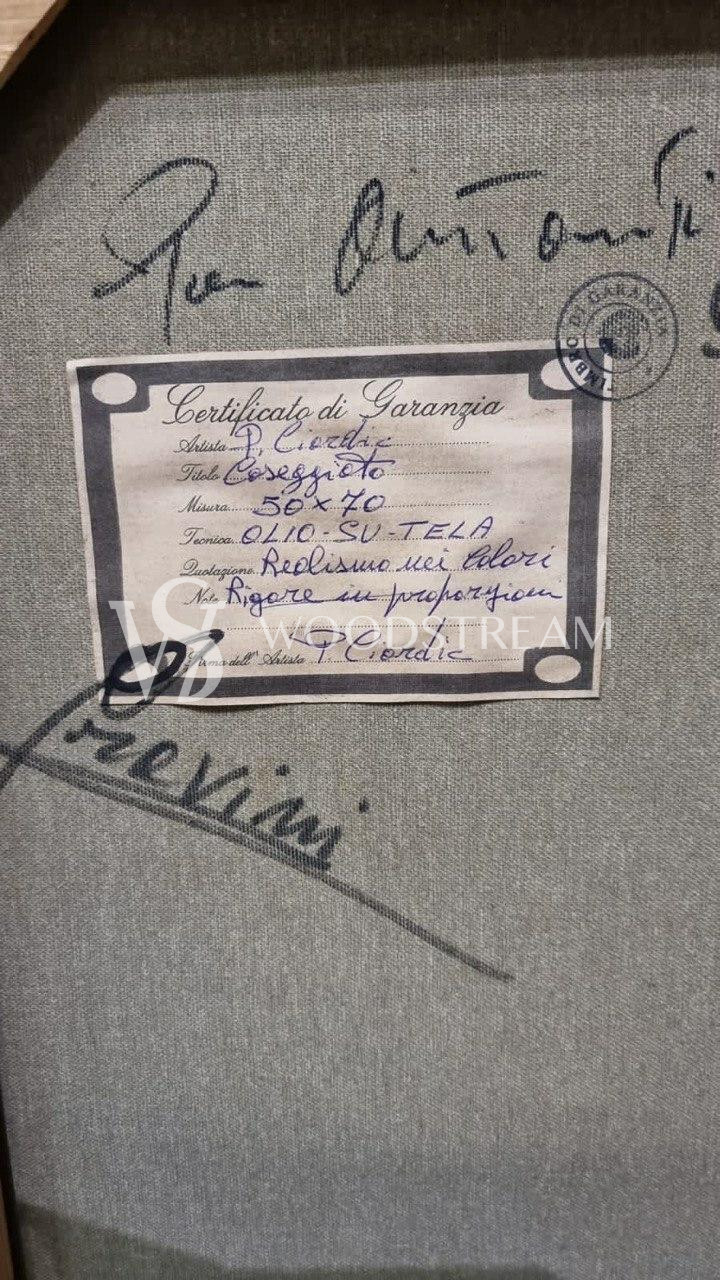 TIMBRO DI GARANZIA
Certificato di Garanzia
Artista P. Ciordic
Titolo Caseggiato
Misura 50 x 70
Tecnica OLIO-SU-TELA
Quotazione Realismo nei Colori
Note Rigore in proporzioni
WOODSTREAM
Firma dell'Artista P Ciordic